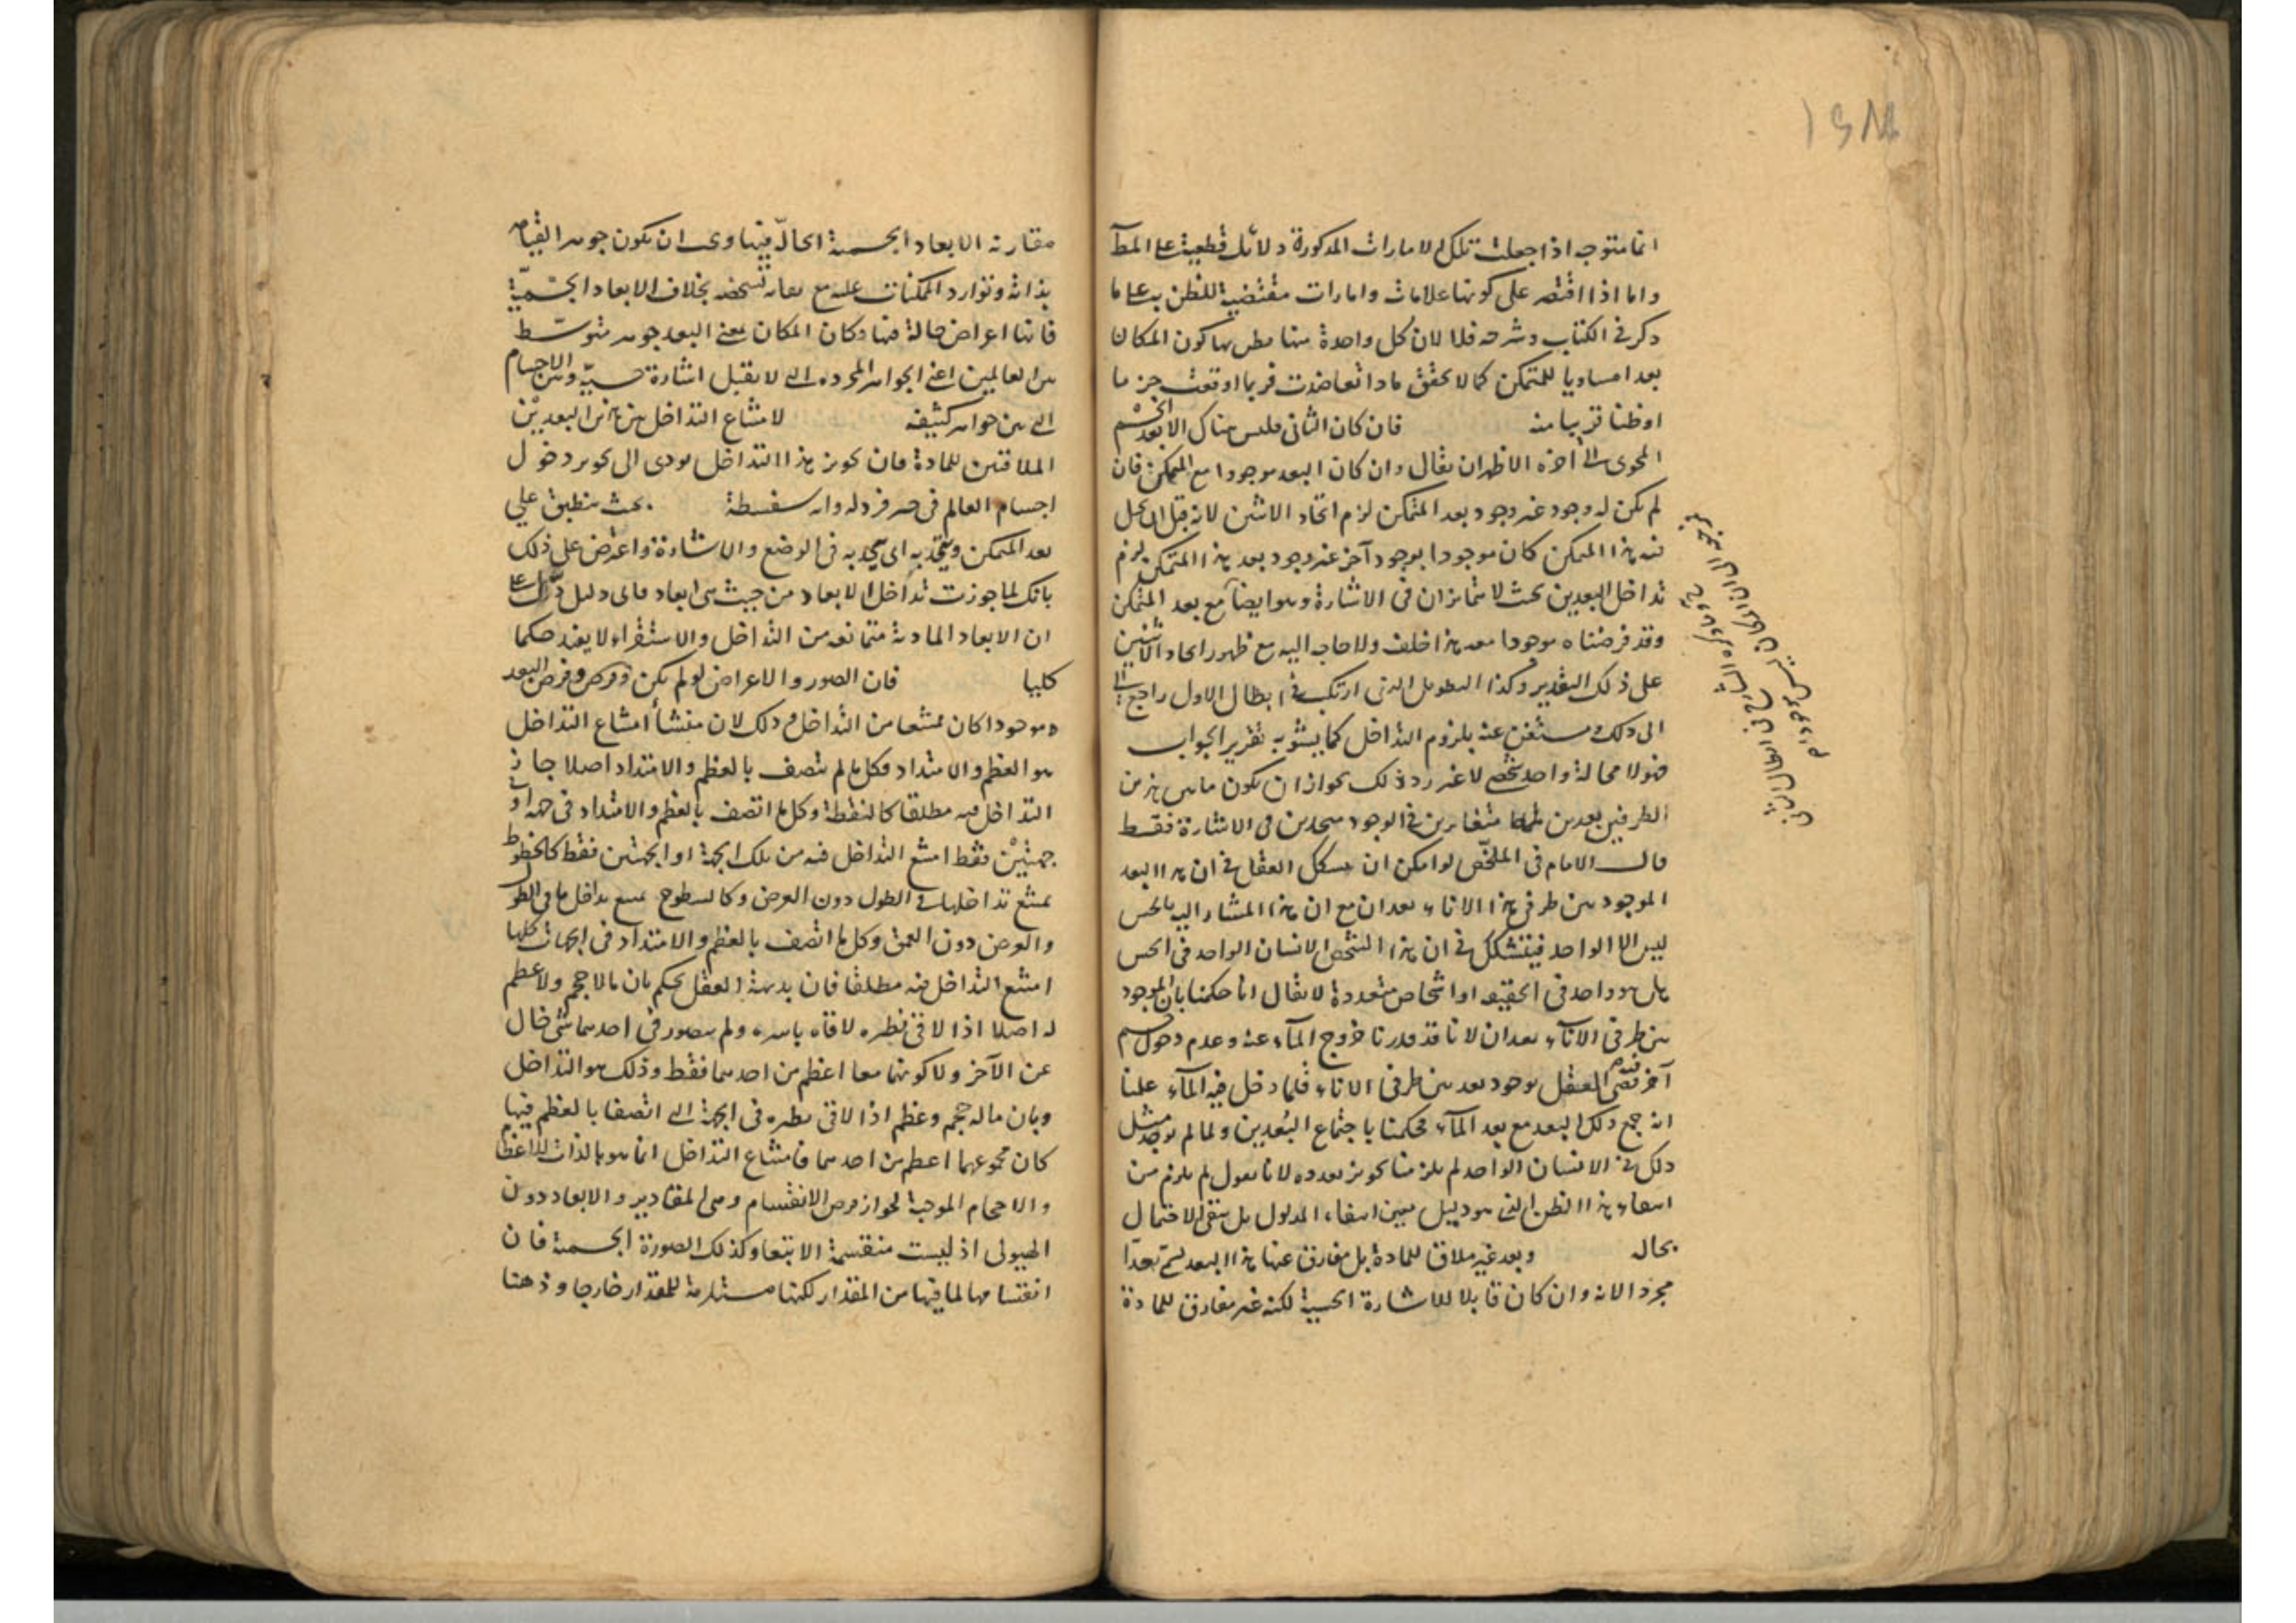 انما متوجه اذا جعلت تلك الامارات المذكورة دلائل قطعية على المط
واما اذا اقتصر على كونها علامات وامارات مقتضية للظن به على ما
ذكر في الكتاب وشرحه فلا لان كل واحدة منها يظن بها كون المكان
بعدا مساويا للمتمكن كما لا يخفى فاذا تعاضدت فربما اوقعت جزما
او ظنا قريبا منه فان كان الثاني فليس هناك الا بعد الجسم
المحوى الى آخره الاظهر ان يقال وان كان البعد موجودا مع المتمكن فان
لم يكن له وجود غير وجود بعد المتمكن لزم اتحاد الاثنين لانه قبل ان يحل
فيه هذا المتمكن كان موجودا بوجود آخر غير وجود بعد هذا المتمكن لزم
تداخل البعدين بحيث لا يتمايزان في الاشارة وهو ايضا مع بعد المتمكن
وقد فرضناه موجودا معه هذا خلف ولا حاجة اليه مع ظهور اتحاد الاثنين
على ذلك التقدير وكذا التطويل الذي ارتكب في ابطال الاول راجع
الى ذلك ومستغن عنه بلزوم التداخل كما يشوبه تقرير الجواب
فهو لا محالة واحد شخصي لا غير رد ذلك بجواز ان يكون ما بين هذين
الطرفين بعدين متغايرين في الوجود متحدين في الاشارة فقط
قال الامام في الملخص لو امكن ان يشكك العقل في ان هذا البعد
الموجود بين طرفي هذا الاناء بعدان مع ان هذا المشار اليه بالحس
ليس الا الواحد فيتشكك في ان هذا الشخص الانسان الواحد في الحس
هل هو واحد في الحقيقة او اشخاص متعددة لا يقال انا حكمنا بان الموجود
بين طرفي الاناء بعدان لانا قد قدرنا خروج الماء عنه وعدم دخول جسم
آخر فيه قضى العقل بوجود بعد بين طرفي الاناء فلما دخل فيه الماء علمنا
انه جمع ذلك البعد مع بعد الماء فحكمنا باجتماع البعدين ولما لم يوجد مثل
ذلك في الانسان الواحد لم يلزمنا تجويز تعدده لانا نقول لم يلزم من
انتفاء هذا الطريق الذي هو دليل معين انتفاء المدلول بل بقى الاحتمال
بحاله وبعد غير ملاق للمادة بل مفارق عنها هذا البعد يسمى بعدا
مجردا لانه وان كان قابلا للاشارة الحسية لكنه غير مفارق للمادة
مقارنة الابعاد الجسمية الحالة فيها ويجب ان يكون جوهرا لقيامه
بذاته وتوارد المتمكنات عليه مع بقائه بشخصه بخلاف الابعاد الجسمية
فانها اعراض حالة فيها وكان المكان بمعنى البعد جوهر متوسط
بين العالمين اعني الجواهر المجردة التي لا يقبل اشارة حسية وبين الاجسام
التي هي جواهر كثيفة لامتناع التداخل بين هذين البعدين
الملاقيين للمادة فان تجويز هذا التداخل يودى الى تجويز دخول
اجسام العالم في حيز خردلة وانه سفسطة بحيث ينطبق على
بعد المتمكن ويتحد به اى يتحد به في الوضع والاشارة واعترض على ذلك
بانك لما جوزت تداخل الابعاد من حيث هي ابعاد فاى دليل دل على
ان الابعاد المادية متمانعة من التداخل والاستقراء لا يفيد حكما
كليا فان الصور والاعراض لو لم يكن وفرض البعد
موجودا كان ممتنعا من التداخل وذلك لان منشأ امتناع التداخل
هو العظم والامتداد فكل ما لم يتصف بالعظم والامتداد اصلا جاز
التداخل فيه مطلقا كالنقطة وكل ما اتصف بالعظم والامتداد في جهة او
جهتين فقط امتنع التداخل فيه من تلك الجهة او الجهتين فقط كالخطوط
يمتنع تداخلها في الطول دون العرض وكالسطوح يمتنع تداخلها في الطول
والعرض دون العمق وكل ما اتصف بالعظم والامتداد في الجهات كلها
امتنع التداخل فيه مطلقا فان بديهة العقل يحكم بان ما لا حجم ولا عظم
له اصلا اذا لاقى نظيره لاقاه باسره ولم يتصور في احدهما شئ خال
عن الآخر ولا كونهما معا اعظم من احدهما فقط وذلك هو التداخل
وبان ما له حجم وعظم اذا لاقى نظيره في الجهة التي اتصفا بالعظم فيها
كان مجموعهما اعظم من احدهما فامتناع التداخل انما هو بالذات للاعظام
والاحجام الموجبة لجواز فرض الانقسام وهي المقادير والابعاد دون
الهيولى اذ ليست منقسمة الا تبعا وكذلك الصورة الجسمية فان
انقسامها لما فيها من المقدار لكنها مستلزمة للمقدار خارجا وذهنا